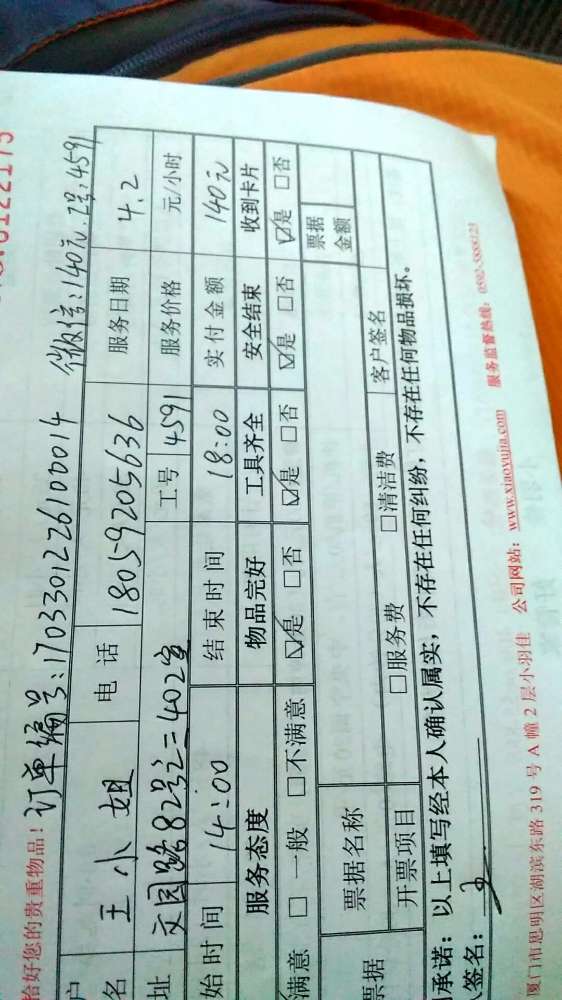 恰好您的贵重物品！ 订单编号:170330122610014 微信:140元.工号:4591
户名 王小姐 电话 18059205636 服务日期 4.2
址 文园路82号之二402室 工号 4591 服务价格 元/小时
始时间 14:00 结束时间 18:00 实付金额 140元
服务态度 物品完好 工具齐全 安全结束 收到卡片
满意 □一般 □不满意 ☑是 □否 ☑是 □否 ☑是 □否 ☑是 □否
票据 票据名称 票据金额
开票项目 □服务费 □清洁费 客户签名
承诺：以上填写经本人确认属实，不存在任何纠纷，不存在任何物品损坏。
人签名：
厦门市思明区湖滨东路 319 号 A 幢 2 层小羽佳 公司网站：www.xiaoyujia.com 服务监督热线：0592-3888123